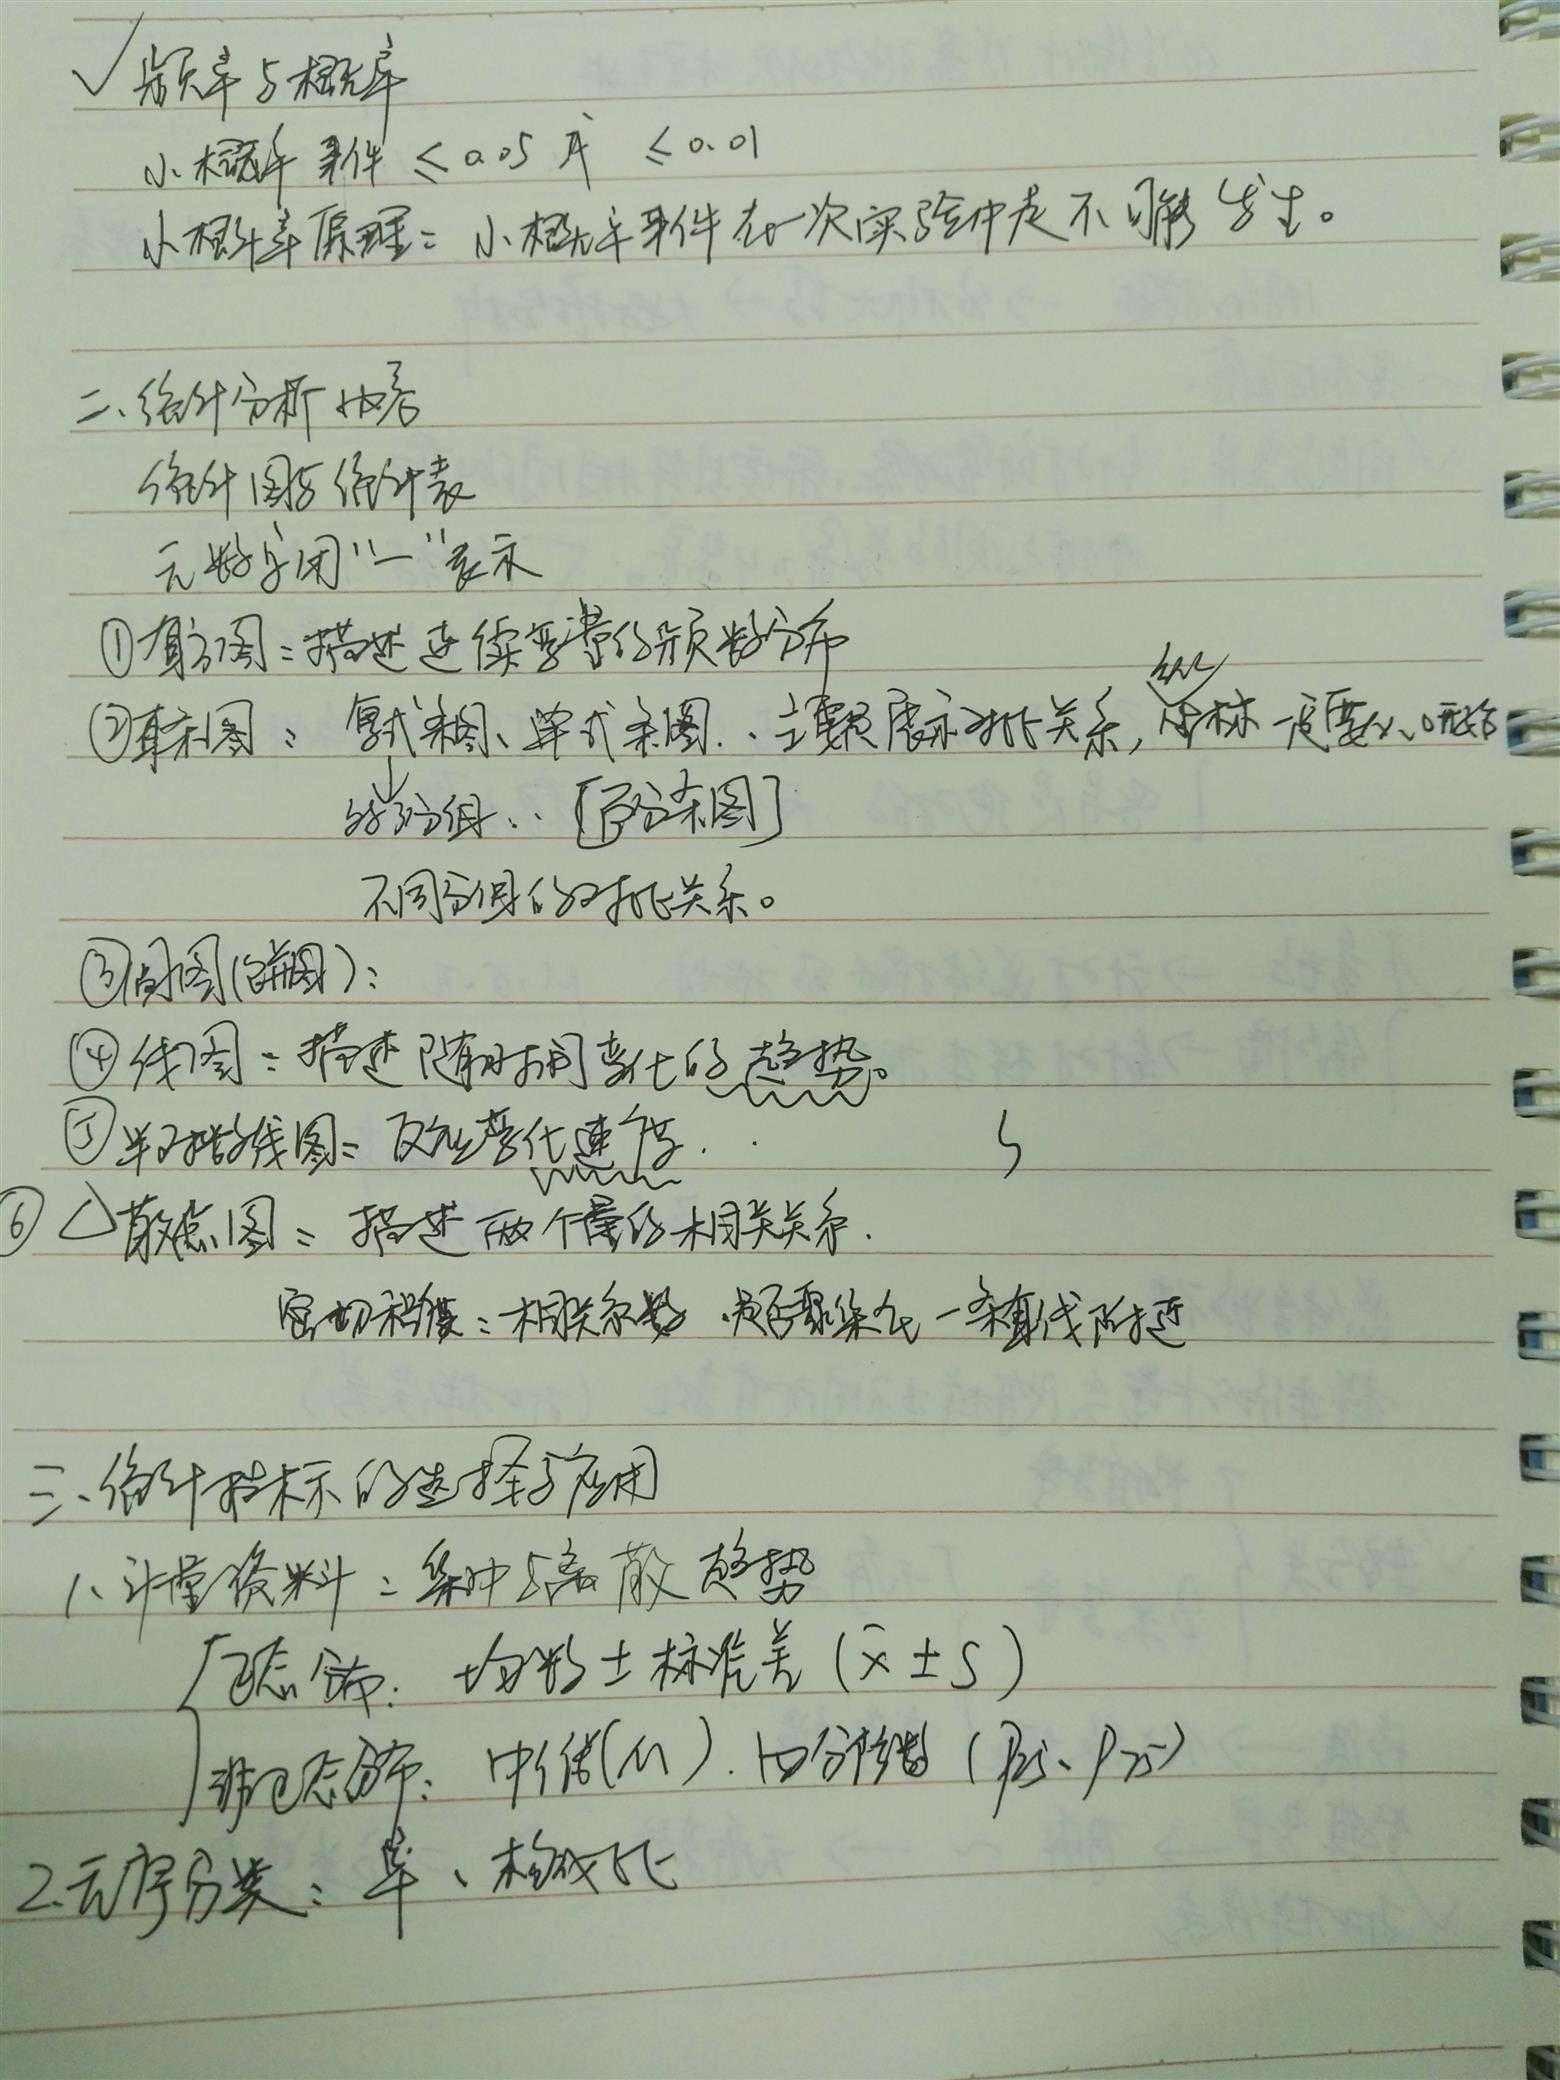 √ 频率与概率
小概率事件 ≤0.05 或 ≤0.01
小概率原理：小概率事件在一次实验中是不可能发生。
二、统计分析内容
统计图与统计表
无数字用“—”表示
①直方图：描述连续变量的频数分布
②直条图：复式条图、单式条图.、主要展示对比关系，纵坐标一定要从0开始
↓
部分组.. [百分条图]
不同分组的对比关系。
③圆图(饼图)：
④线图：描述随时间变化的趋势。
⑤半对数线图：反应变化速度.
⑥△散点图：描述两个量的相关关系.
密切程度：相关系数 是否聚集在一条直线附近
三、统计指标的选择与应用
1、计量资料：集中与离散趋势
正态分布：均数±标准差（x̄±S）
非正态分布：中位数(M).四分位数（P25、P75）
2.无序分类：率、构成比